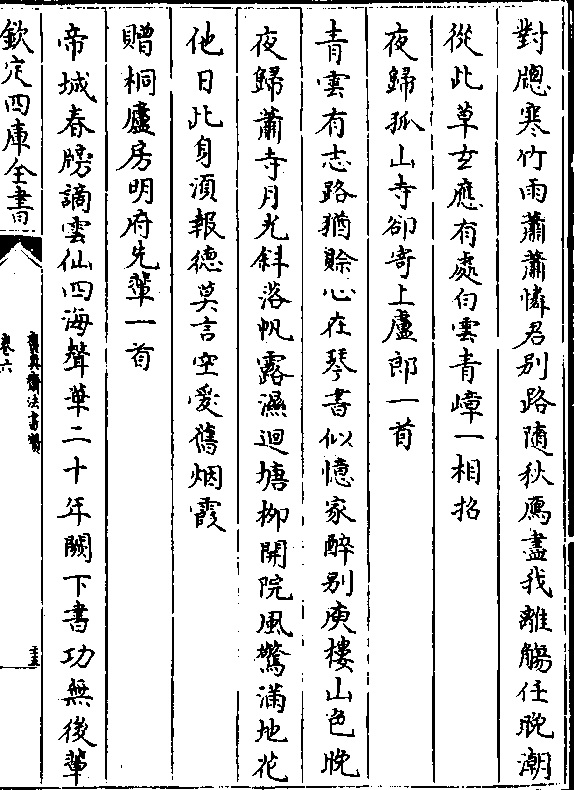 對牕寒竹雨蕭蕭憐君別路隨秋鴈盡我離觴任晚潮
從此草玄應有處白雲青嶂一相招
夜歸孤山寺卻寄上盧郎一首
青雲有志路猶賖心在琴書似憶家醉別庾樓山色晚
夜歸蕭寺月光斜落帆露濕迴塘柳開院風驚滿地花
他日此身須報德莫言空愛舊烟霞
贈桐廬房明府先輩一首
帝城春牓謫雲仙四海聲華二十年闕下書功無後輩
欽定四庫全書
寶真齋法書贊
卷六